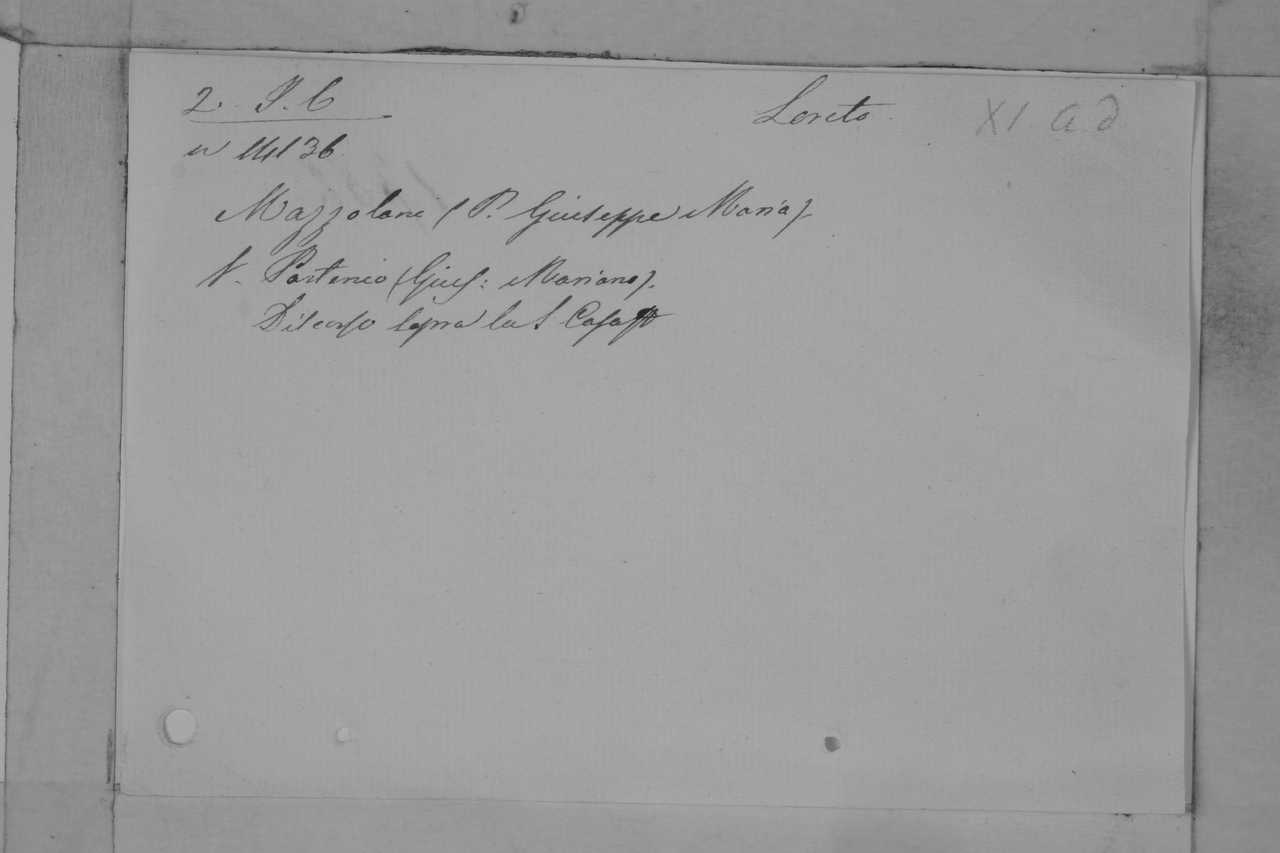 2. P. C Loreto. XI a d
n 14136
Mazzolari (P. Giuseppe Maria)
V. Partenio (Gius: Mariano).
Discorso sopra la S Casa